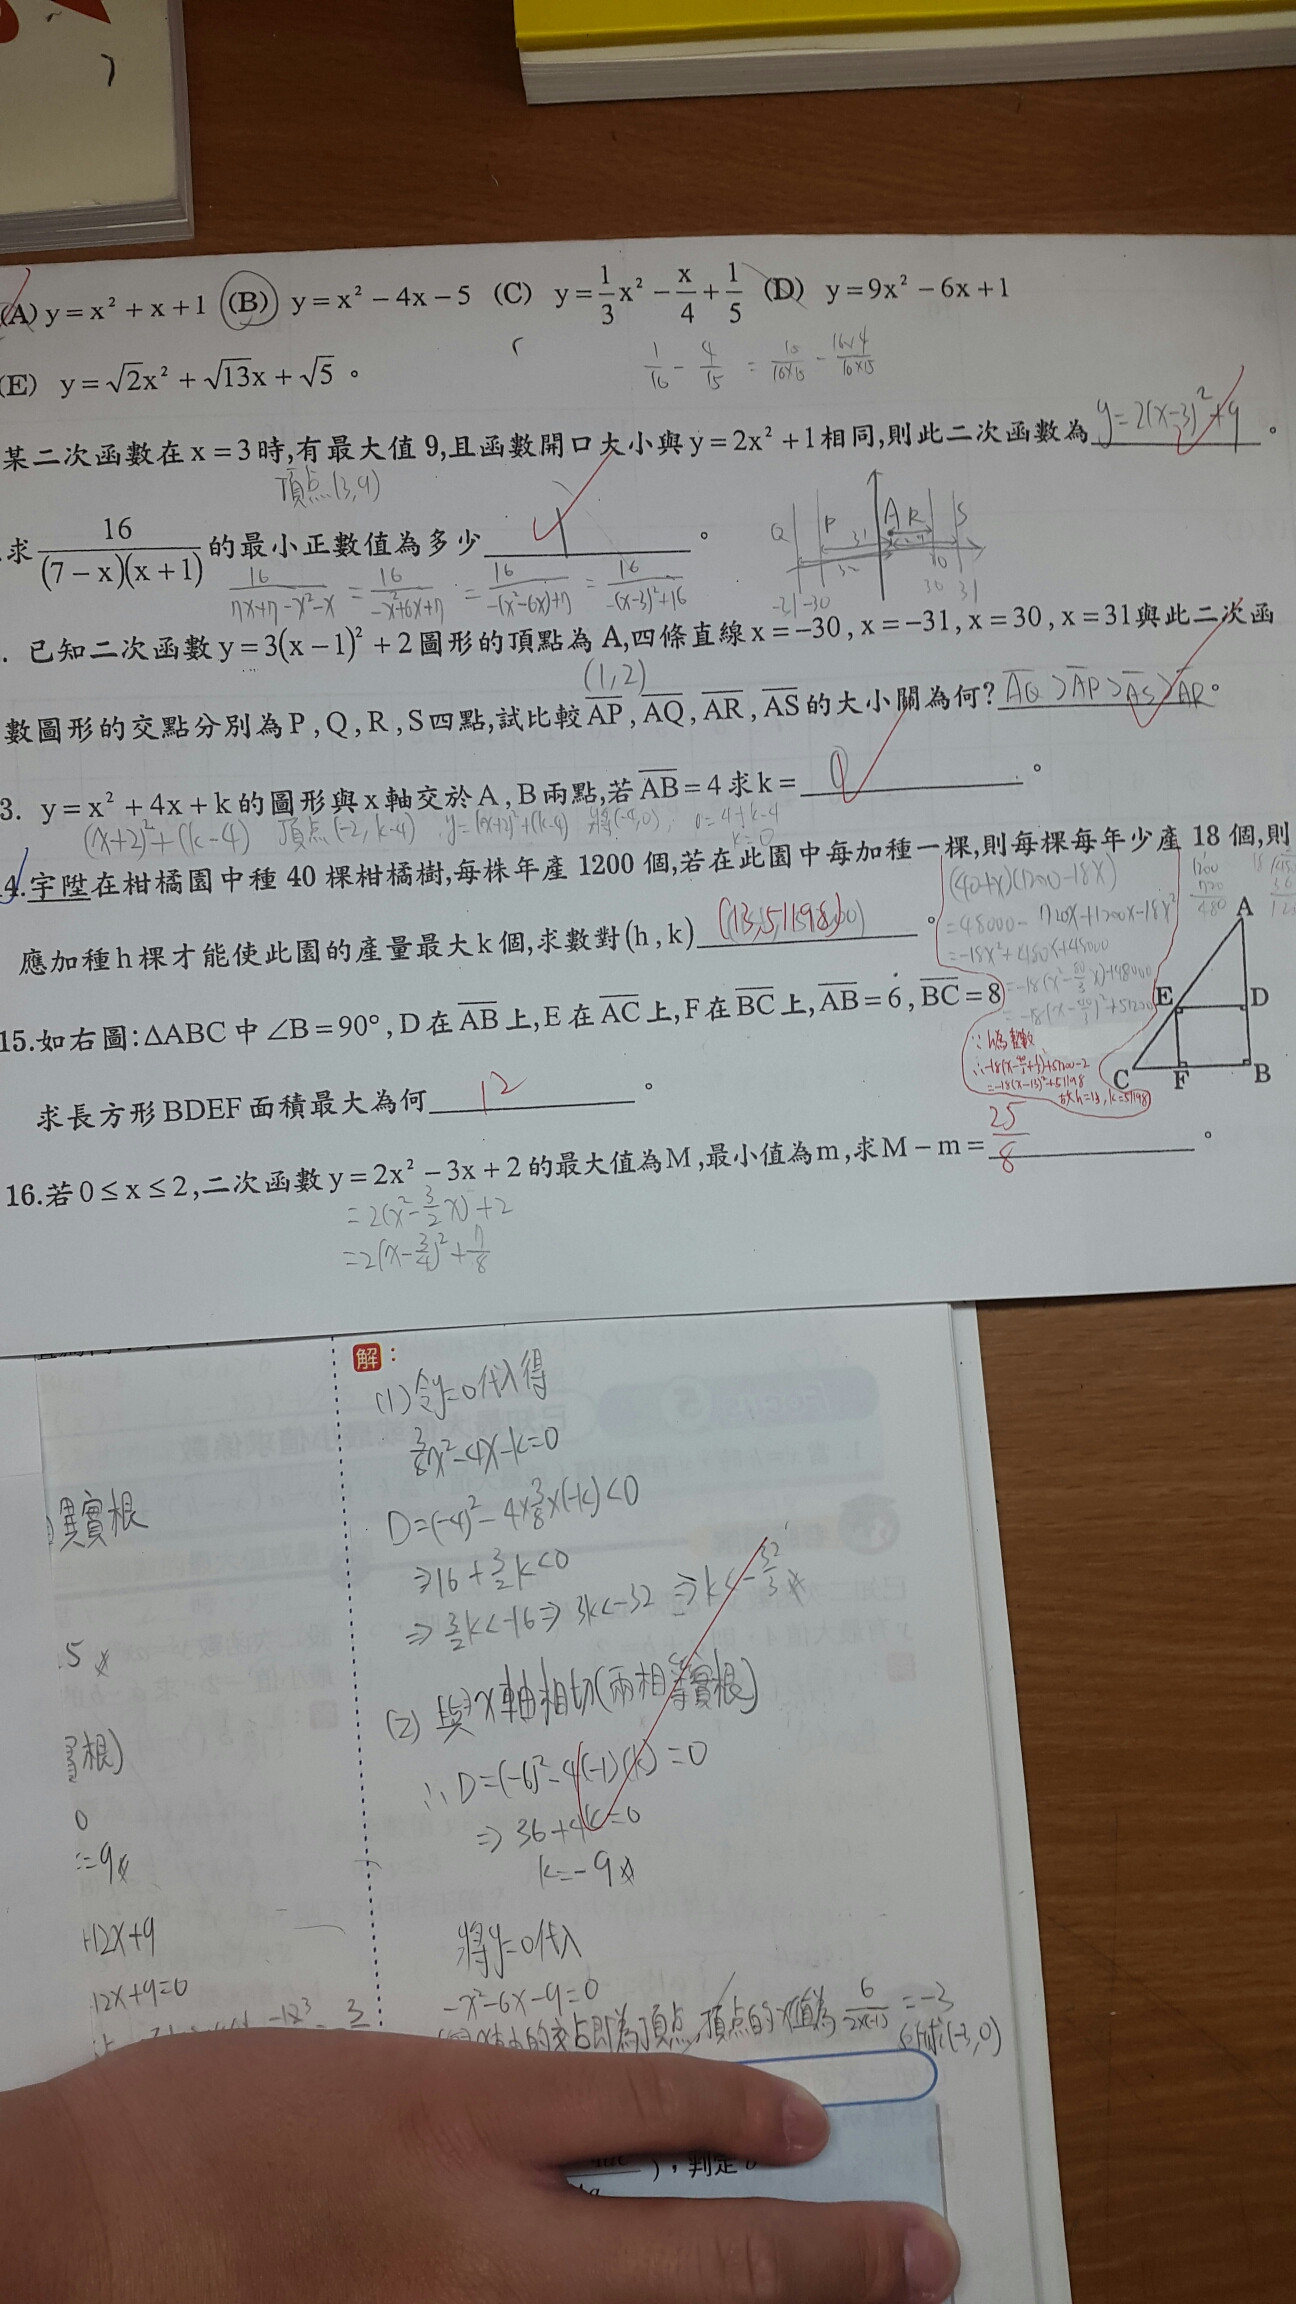 (A) y = x² + x + 1 (B) y = x² − 4x − 5 (C) y = 1/3 x² − x/4 + 1/5 (D) y = 9x² − 6x + 1
1/16 − 4/15 =
(E) y = √2x² + √13x + √5 。
某二次函數在 x = 3 時,有最大值 9,且函數開口大小與 y = 2x² + 1 相同,則此二次函數為 y = 2(x−3)² + 9 。
頂點(3,9)
求 16/((7 − x)(x + 1)) 的最小正數值為多少 1 。
16/(7x+7−x²−x) = 16/(−x²+6x+7) = 16/(−(x²−6x)+7) = 16/(−(x−3)²+16)
Q P A R S
31 32
-31 -30 30 31
. 已知二次函數 y = 3(x − 1)² + 2 圖形的頂點為 A,四條直線 x = −30 , x = −31 , x = 30 , x = 31 與此二次函
(1,2)
數圖形的交點分別為 P , Q , R , S 四點,試比較 AP , AQ , AR , AS 的大小關為何? AQ > AP > AS > AR 。
3. y = x² + 4x + k 的圖形與 x 軸交於 A , B 兩點,若 AB = 4 求 k = 0 。
(x+2)²+(k−4) 頂點(−2, k−4) y=(x+2)²+(k−4) 將(−4,0) 0=4+k−4
k=0
14.宇陞在柑橘園中種 40 棵柑橘樹,每株年產 1200 個,若在此園中每加種一棵,則每棵每年少產 18 個,則
(40+x)(1200−18x)
1200
720
480
應加種 h 棵才能使此園的產量最大 k 個,求數對 (h , k) (13,51198) 。
=48000−720x+1200x−18x²
=−18x²+480x+48000
=−18(x²−80/3 x)+48000
∵h為整數
=−18(x−13)²+51198
故h=13, k=51198
A
E D
C F B
15.如右圖: ΔABC 中 ∠B = 90° , D 在 AB 上, E 在 AC 上, F 在 BC 上, AB = 6 , BC = 8
求長方形 BDEF 面積最大為何 12 。
16.若 0 ≤ x ≤ 2 ,二次函數 y = 2x² − 3x + 2 的最大值為 M ,最小值為 m ,求 M − m = 25/8 。
=2(x²−3/2 x)+2
=2(x−3/4)²+7/8
解:
(1) 令y=0代入得
3/8 x²−4x−k=0
D=(−4)²−4×3/8×(−k)<0
⇒16+3/2 k<0
⇒3/2 k<−16⇒3k<−32 ⇒k<−32/3
(2) 與x軸相切(兩相等實根)
∴D=(−6)²−4(−1)(k)=0
⇒36+4k=0
k=−9
將y=0代入
−x²−6x−9=0
的交點即為頂點,頂點的x值為 6/(2×(−1)) =−3
所求(−3,0)
異實根
5
根)
0
=9
+12x+9
12x+9=0
),判定